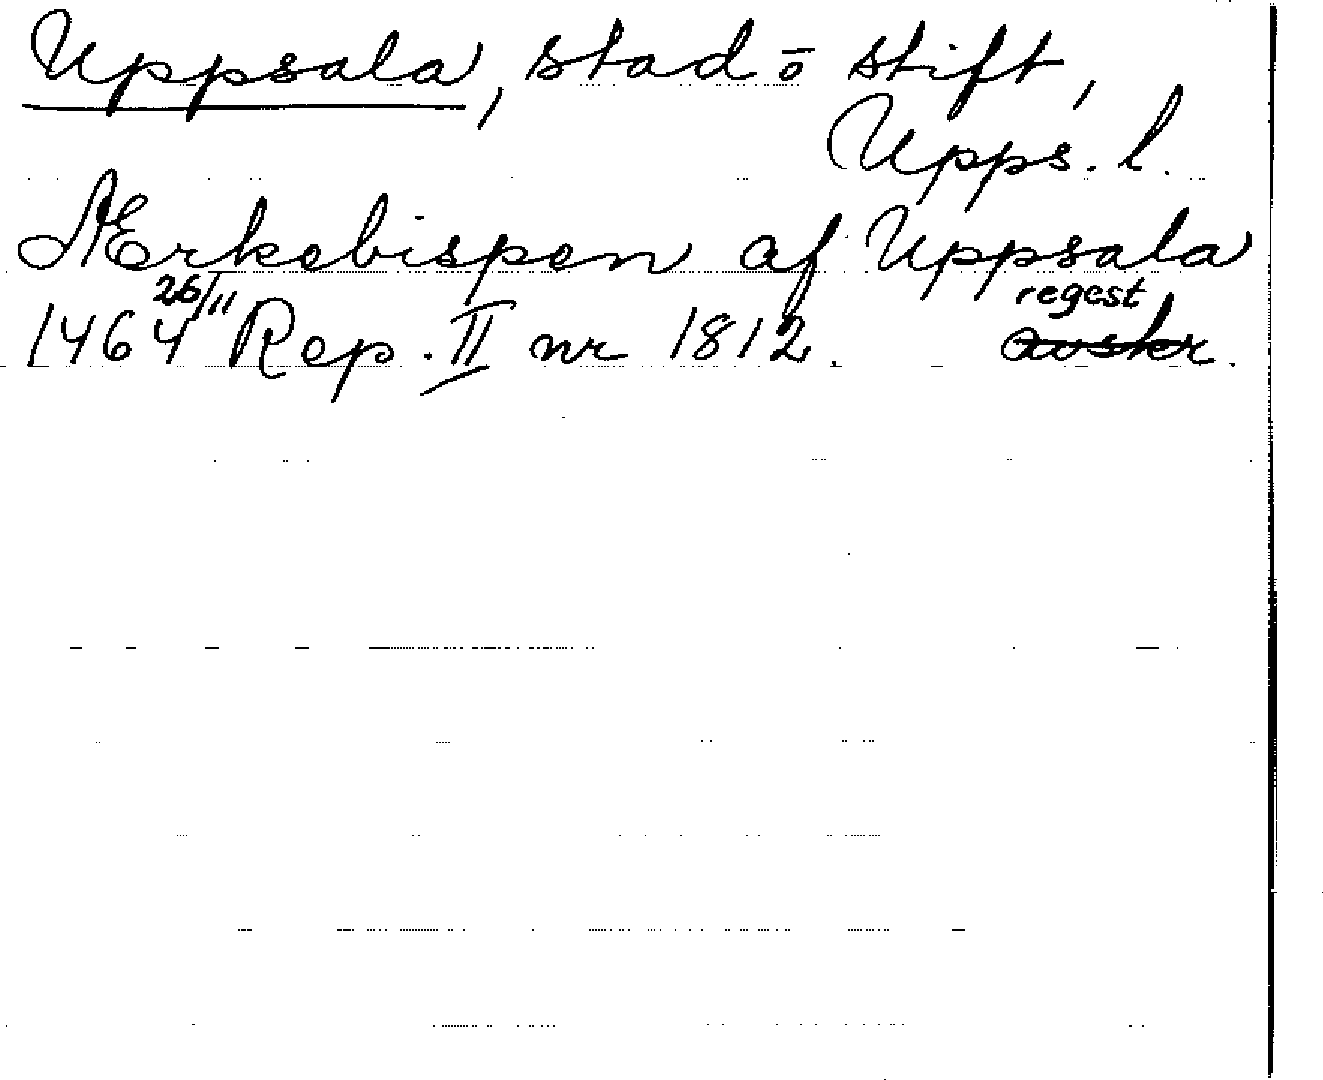 Uppsala, stad ō stift,
Upps. l.
Ærkebispen af Uppsala
1464 26/11 Rep. II nr 1812. regest avskr.